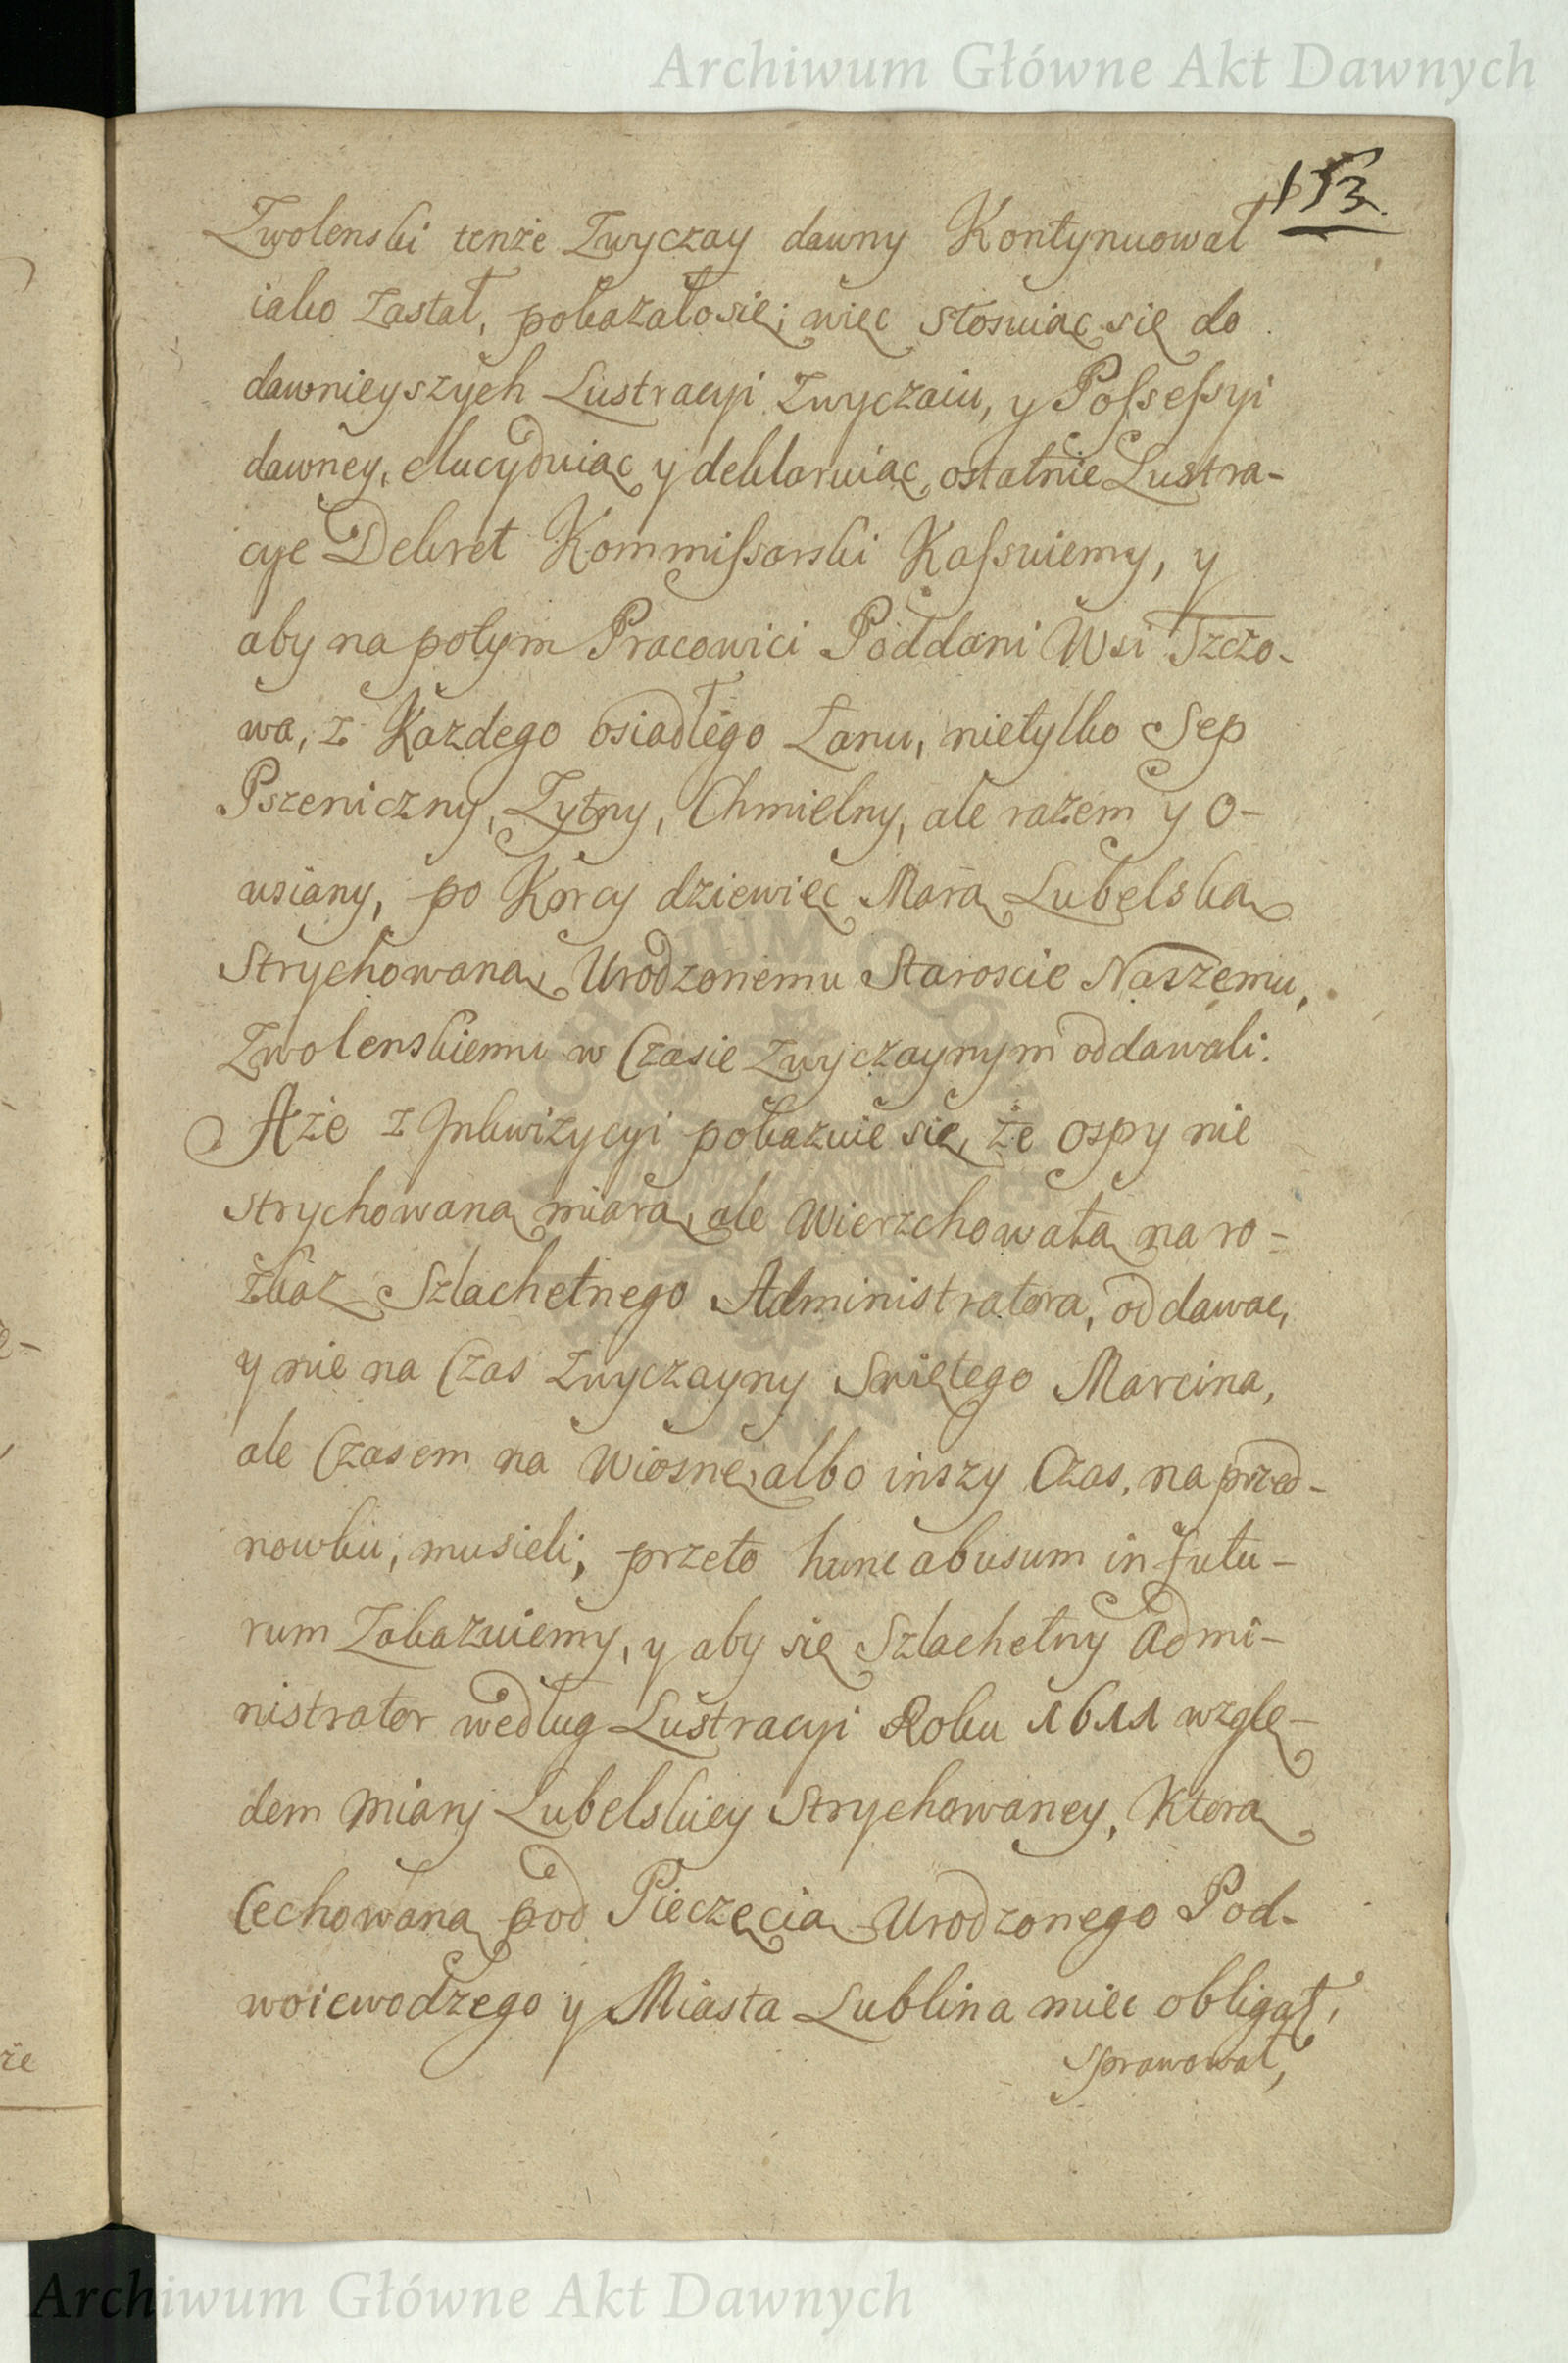 Archiwum Główne Akt Dawnych
153
Zwolenski tenże Zwyczay dawny Kontynuował
iako zastał, pokazało się; więc stosuiąc się do
dawnieyszych Lustracyi Zwyczaiu, y Possessyi
dawney, elucyduiąc y deklaruiąc, ostatnie Lustra-
cye Dekret Kommissarski Kassuiemy, y
aby napotym Pracowici Poddani Wsi Tzczo-
wa, z Każdego osiadłego Łanu, nietylko Sep
Pszeniczny, Zytny, Chmielny, ale razem y O-
wsiany, po Korcy dziewięc Marą Lubelską
Strychowaną, Urodzonemu Staroscie Naszemu,
Zwolenskiemu w Czasie Zwyczaynym oddawali.
Aże z Inkwizycyi pokazuie się, że ospy nie
strychowaną miarą, ale Wierzchowatą na ro-
zkaz Szlachetnego Administratora, oddawac,
y nie na Czas zwyczayny Swiętego Marcina,
ale Czasem na Wiosnę, albo inszy Czas, na przed-
nowku, musieli, przeto hunc abusum in futu-
rum Zakazuiemy, y aby się Szlachetny Admi-
nistrator według Lustracyi Roku 1611 wzglę-
dem miary Lubelskiey Strychowaney, Którą
Cechowaną pod Pieczęcią Urodzonego Pod-
woiewodzego y Miasta Lublina miec obligat,
sprawował,
że
Archiwum Główne Akt Dawnych